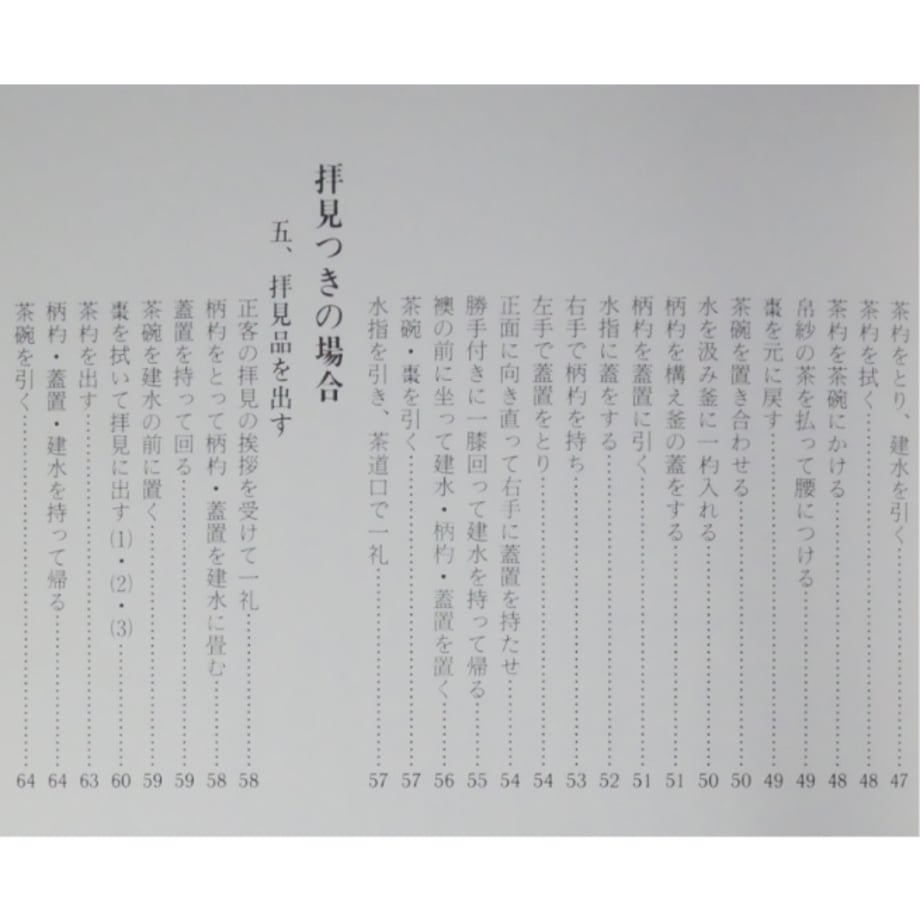 茶杓をとり、建水を引く……47
茶杓を拭く……48
茶杓を茶碗にかける……48
帛紗の茶を払って腰につける……49
棗を元に戻す……49
茶碗を置き合わせる……50
水を汲み釜に一杓入れる……50
柄杓を構え釜の蓋をする……51
柄杓を蓋置に引く……51
水指に蓋をする……52
右手で柄杓を持ち……53
左手で蓋置をとり……54
正面に向き直って右手に蓋置を持たせ……54
勝手付きに一膝回って建水を持って帰る……55
襖の前に坐って建水・柄杓・蓋置を置く……56
茶碗・棗を引く……57
水指を引き、茶道口で一礼……57
拝見つきの場合
五、拝見品を出す
正客の拝見の挨拶を受けて一礼……58
柄杓をとって柄杓・蓋置を建水に畳む……58
蓋置を持って回る……59
茶碗を建水の前に置く……59
棗を拭いて拝見に出す(1)・(2)・(3)……60
茶杓を出す……63
柄杓・蓋置・建水を持って帰る……64
茶碗を引く……64